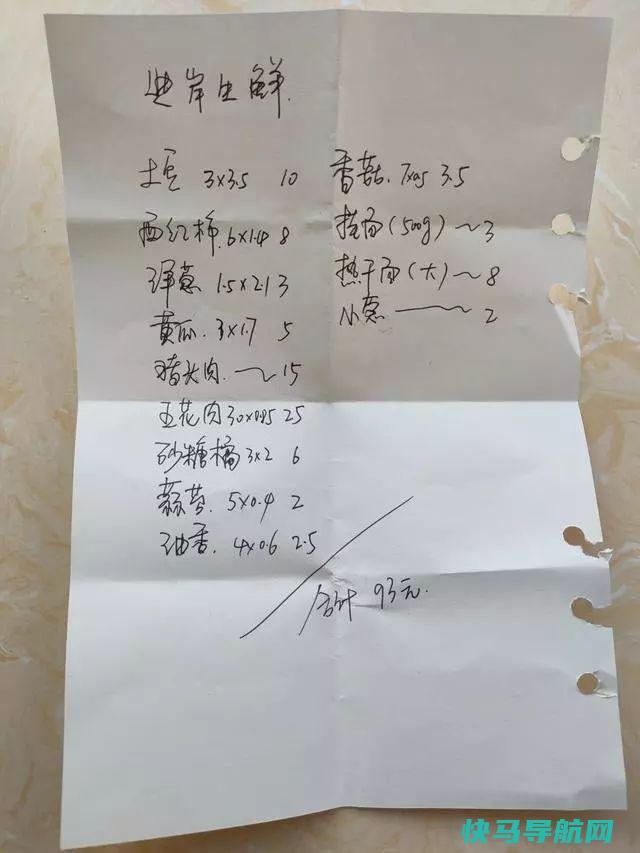 岸生鲜.
土豆 3x3.5 10
西红柿. 6x1.4 8
洋葱 1.5x2.1 3
黄瓜. 3x1.7 5
猪头肉. ～15
五花肉 30x0.85 25
砂糖橘 3x2 6
蒜苔. 5x0.4 2
油香. 4x0.6 2.5
香菇. 7x0.5 3.5
挂面(500g)～3
热干面(大)～8
小葱 —— 2
合计 93元.
快马导航网